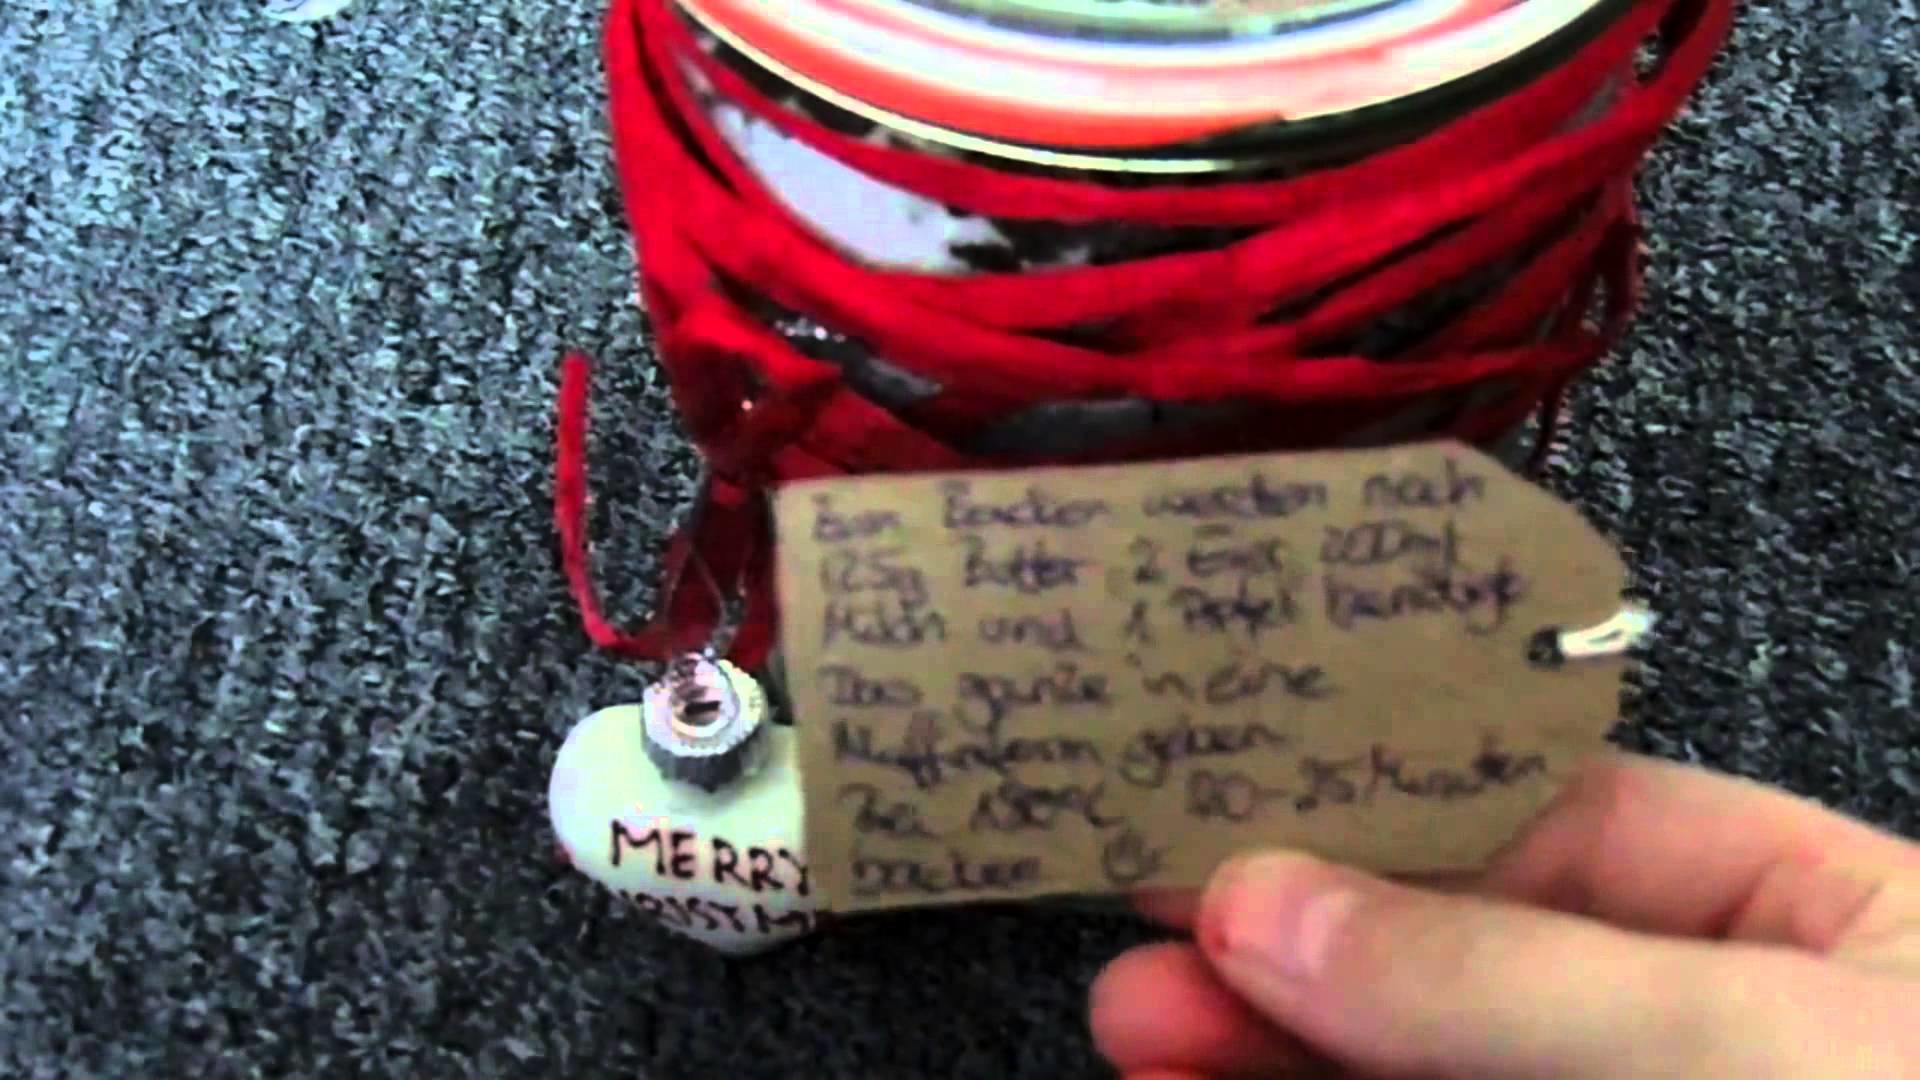 Zum Backen werden noch
125g Butter 2 Eier 200ml
Milch und 1 Apfel benötigt
Das ganze in eine
Muffinform geben
Bei 180°C 20-25 Minuten
backen
MERRY